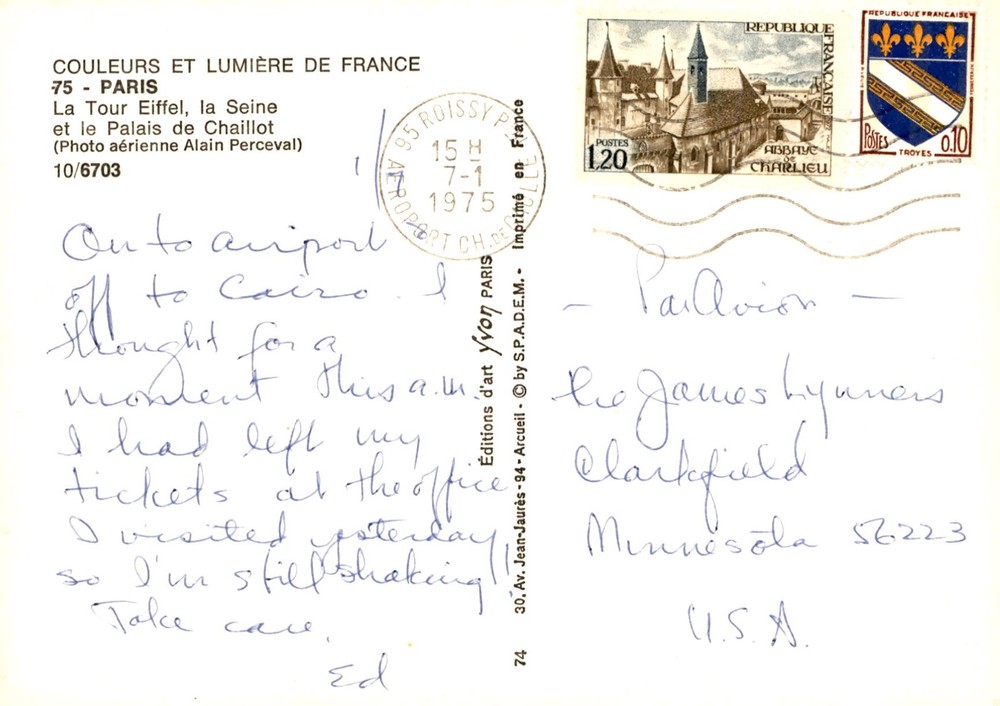 COULEURS ET LUMIÈRE DE FRANCE
75 - PARIS
La Tour Eiffel, la Seine
et le Palais de Chaillot
(Photo aérienne Alain Perceval)
10/6703
On to airport
off to Cairo. I
thought for a
moment this a.m.
I had left my
tickets at the office
I visited yesterday
so I'm still shaking!!
Take care,
Ed
95 ROISSY
AEROPORT CH. DE GAULLE
15 H
7-1
1975
Éditions d'art Yvon PARIS
74 30, Av. Jean-Jaurès - 94 - Arcueil - © by S.P.A.D.E.M. - Imprimé en France
REPUBLIQUE FRANÇAISE
POSTES
1,20
ABBAYE
DE
CHARLIEU
REPUBLIQUE FRANÇAISE
POSTES
0,10
TROYES
- Par Avion -
The James Lynners
Clarkfield
Minnesota 56223
U.S.A.